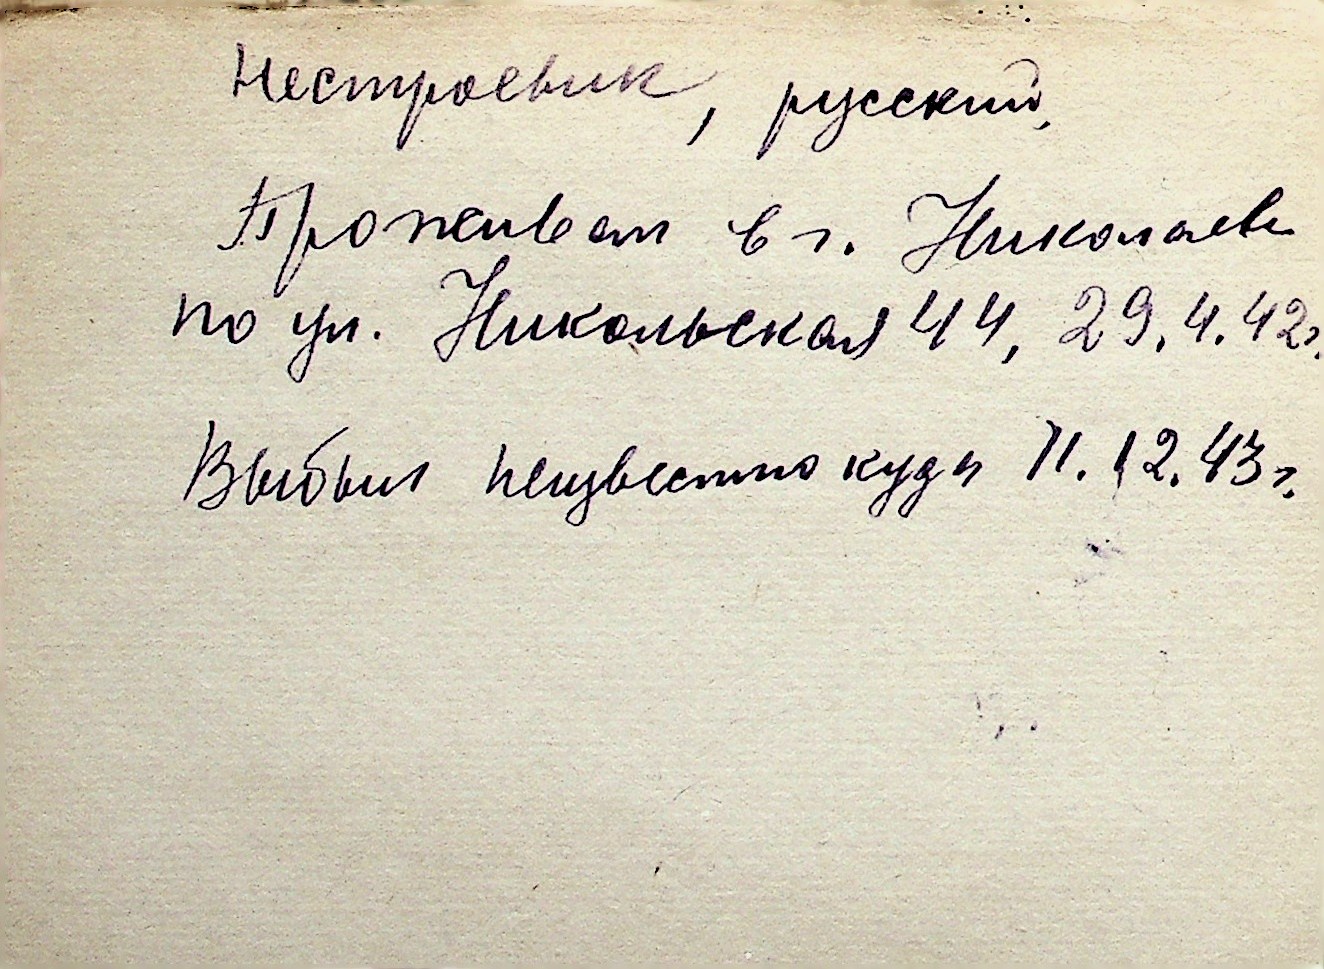 Нестроевик, русский,
Проживал в г. Николаеве
по ул. Никольская 44, 29.4.42г.
Выбыл неизвестно куда 11.12.43г.